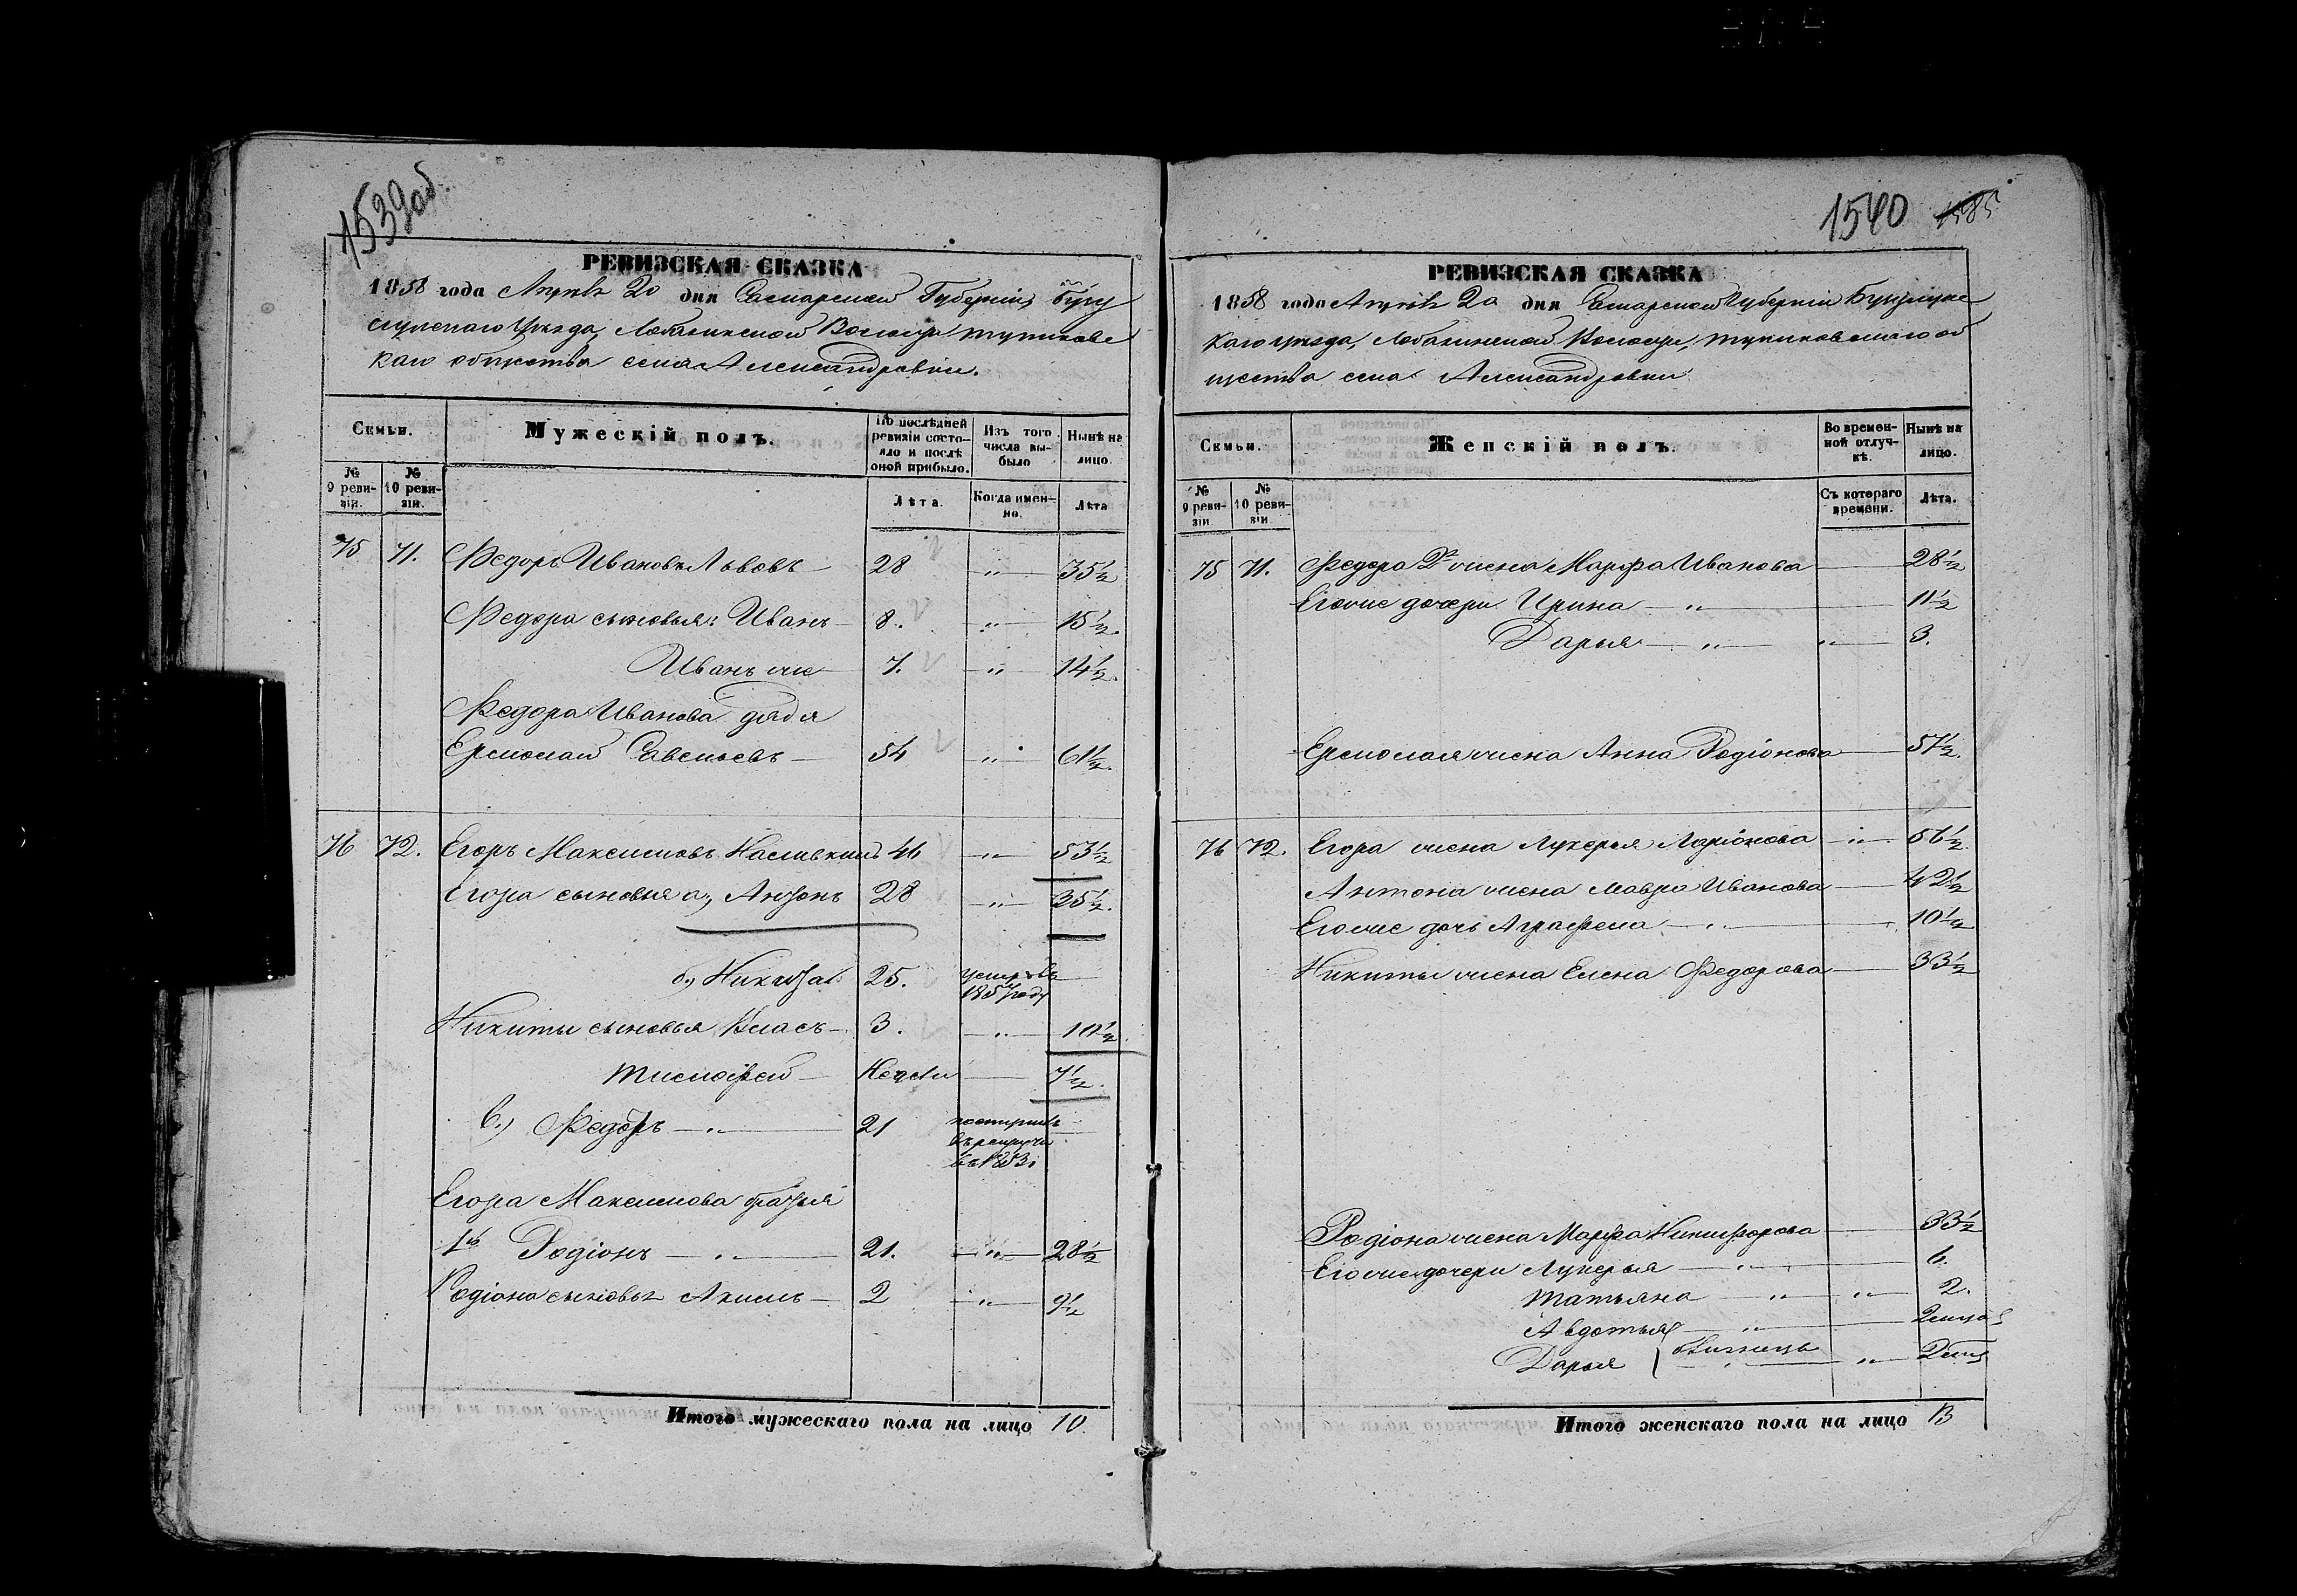 1539об.
РЕВИЗСКАЯ СКАЗКА
1858 года Апрѣля 20 дня Самарской Губерніи, Бугу
русланскаго Уѣзда, Лобазинской Волости
каго общества села Александровки.
Семьи.
Мужескій полъ.
По послѣдней ревизіи состояло и послѣ оной прибыло.
Изъ того числа выбыло
Нынѣ на лицо.
№ 9 ревизіи.
№ 10 ревизіи.
Лѣта.
Когда именно.
Лѣта
75 71. Федоръ Ивановъ Львовъ 28 „ 35½
Федора сыновья: Иванъ 8. „ 15½.
Иванъ же 7. „ 14½.
Федора Иванова дядя
Ермолай Савельевъ 54 „ 61½.
76 72. Егоръ Максимовъ 46 „ 53½
Егора сыновья а., Антонъ 28 „ 35½.
б., Никита 25. умеръ въ
1857 году
Никиты сыновья Власъ 3. „ 10½.
Тимофей 7½.
в.) Федоръ „ 21 поступилъ
въ рекруты
въ 1853.
Егора Максимова братья
1й Родіонъ „ 21. „ 28½
Родіона сыновья Акимъ 2 „ 9½
Итого мужескаго пола на лицо 10.
1540 1585
РЕВИЗСКАЯ СКАЗКА
1858 года Апрѣля 20 дня Самарской Губерніи
каго уѣзда, Лобазинской Волости, об
щества села Александровки
Семьи.
Женскій полъ.
Во временной отлучкѣ.
Нынѣ на лицо.
№ 9 ревизіи
№ 10 ревизіи
Съ котораго времени.
Лѣта.
75 71. Федора 2я жена Марфа Иванова 28½
Егоже дочери Ирина „ 11½
Дарья „ „ 3.
Ермолая жена Анна Родіонова 57½.
76 72. Егора жена Лукерья Ларіонова „ 56½
Антона жена Мавра Иванова 42½
Егоже дочь Аграфена „ 10½
Никиты жена Елена Федорова 33½
Родіона жена Марфа Никифорова 33½
Егоже дочери Лукерья „ 6.
Татьяна „ „ 2.
Авдотья „
Дарья близнецы „
Итого женскаго пола на лицо 13